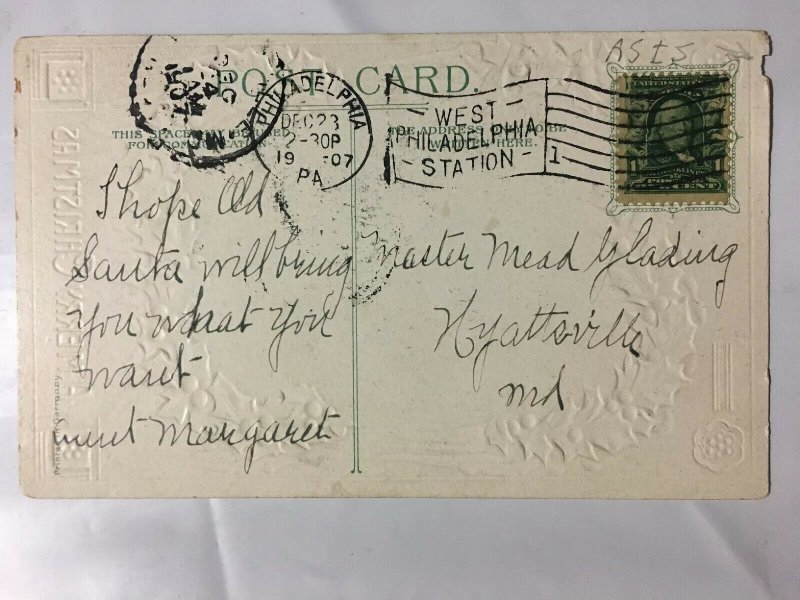 AS IS
POST CARD.
THIS SPACE
FOR
THE ADDRESS
HERE.
PHILADELPHIA
DEC 23
2-30P
19 07
PA
WEST
PHILADELPHIA
STATION
1
DEC
24
AM
07
I hope Old
Santa will bring
You what You
want
Aunt Margaret
Master Mead Glading
Hyattsville
Md
MERRY CHRISTMAS
Printed in Germany